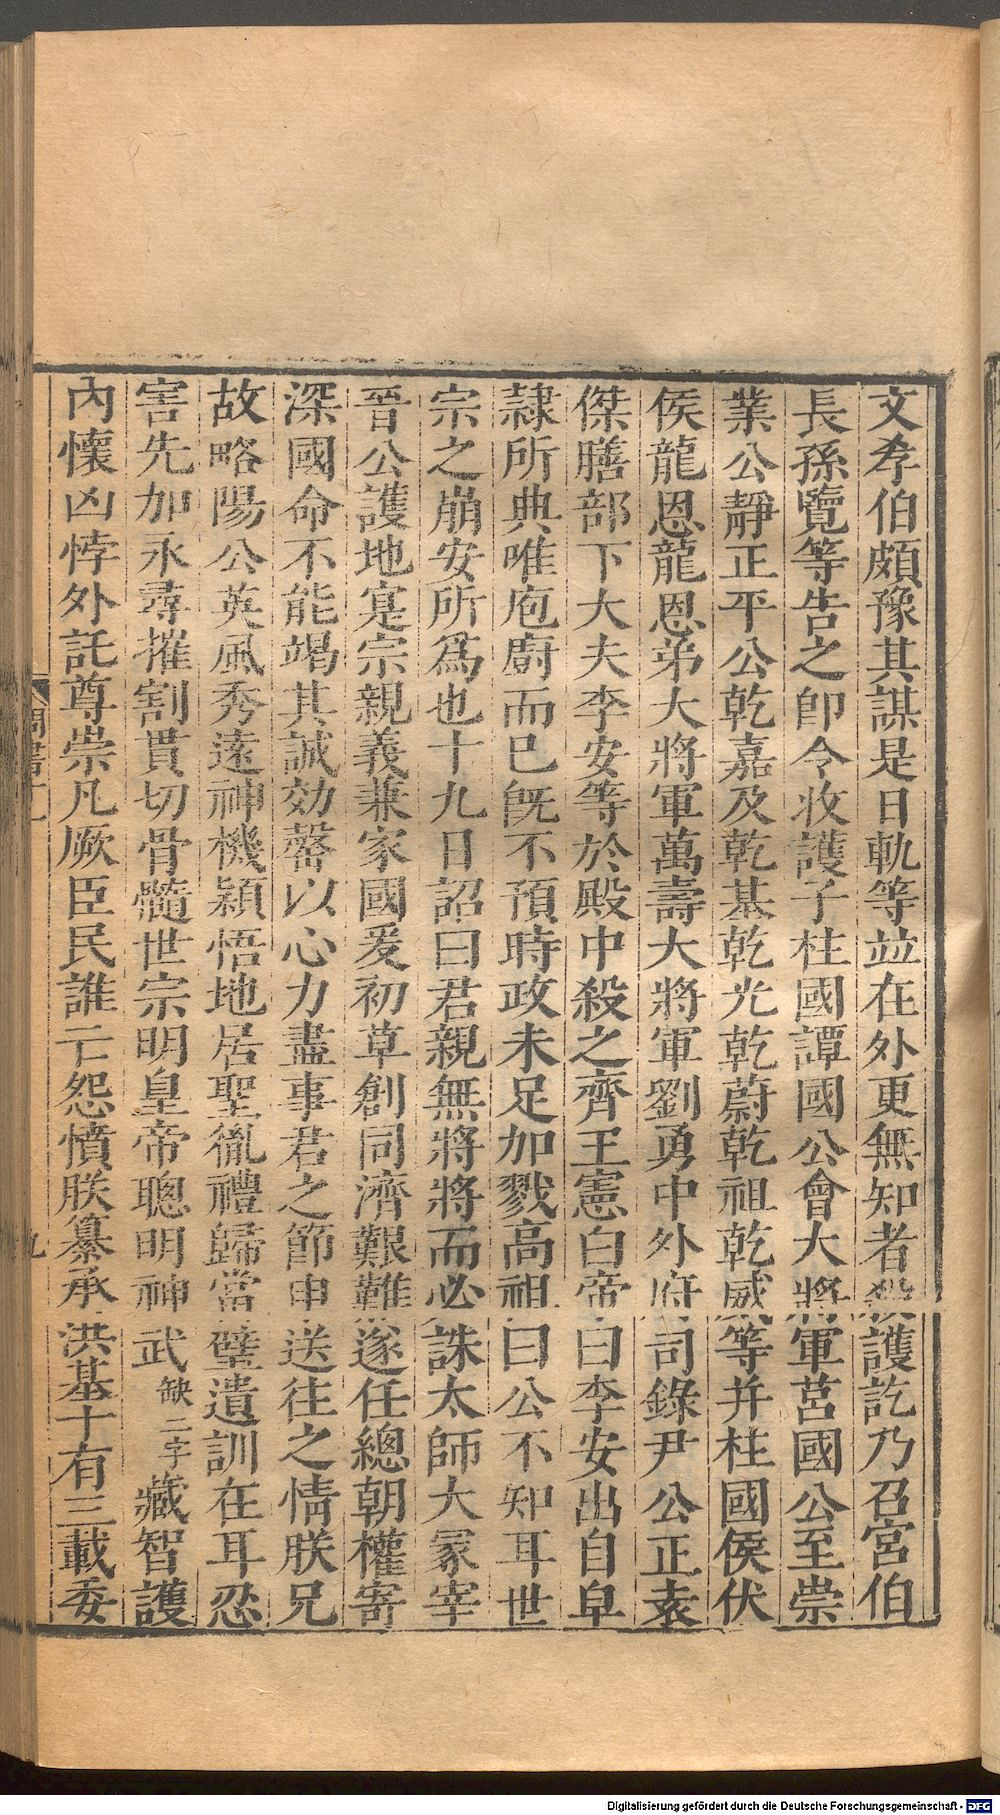 文孝伯頗豫其謀是日軌等並在外更無知者殺護訖乃召宮伯
長孫覽等告之卽令收護子柱國譚國公會大將軍莒國公至崇
業公靜正平公乾嘉及乾基乾光乾蔚乾祖乾威等并柱國侯伏
侯龍恩龍恩弟大將軍萬壽大將軍劉勇中外府司錄尹公正袁
傑膳部下大夫李安等於殿中殺之齊王憲白帝曰李安出自皁
隷所典唯庖廚而已旣不預時政未足加戮高祖曰公不知耳世
宗之崩安所爲也十九日詔曰君親無將將而必誅太師大冢宰
晉公護地寔宗親義兼家國爰初草創同濟艱難遂任總朝權寄
深國命不能竭其誠効罄以心力盡事君之節申送往之情朕兄
故略陽公英風秀遠神機穎悟地居聖胤禮歸當璧遺訓在耳忍
害先加永尋摧割貫切骨髓世宗明皇帝聰明神武缺二字藏智護
內懷凶悖外託尊崇凡厥臣民誰亡怨憤朕纂承洪基十有三載委
九
Digitalisierung gefördert durch die Deutsche Forschungsgemeinschaft - DFG